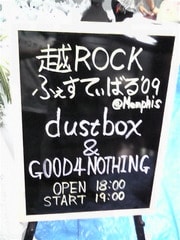 越ROCK
ふぇすてぃばる'09
@Memphis
dustbox
&
GOOD4NOTHING
OPEN 18:00
START 19:00